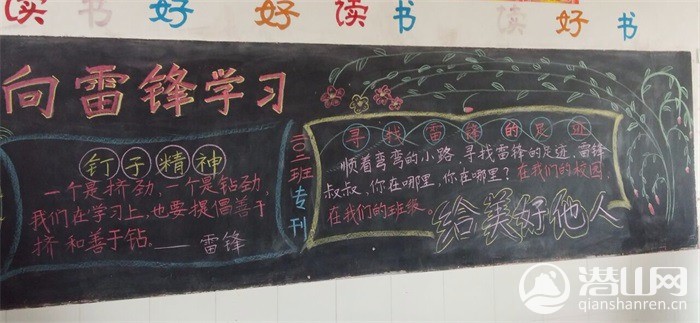 读书好 好读书 读好书
向雷锋学习
钉子精神
一个是挤劲,一个是钻劲,
我们在学习上,也要提倡善于
挤和善于钻。
——雷锋
二班专刊
寻找雷锋的足迹
顺着弯弯的小路,寻找雷锋的足迹,雷锋
叔叔,你在哪里,你在哪里?在我们的校园,
在我们的班级。
给美好他人
潜山网
qianshanren.cn